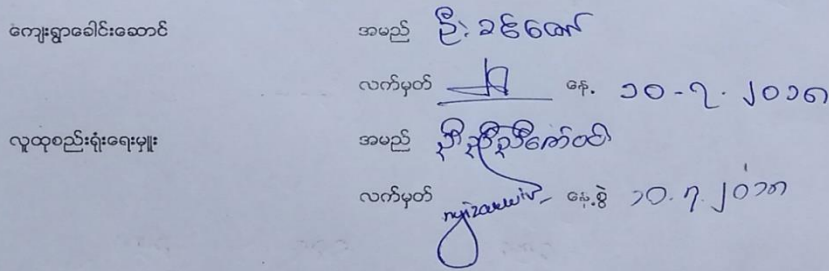 ကျေးရွာခေါင်းဆောင် အမည် ဦးခင်ဇော်
လက်မှတ် နေ့. ၁၀-၇-၂၀၁၈
လူထုစည်းရုံးရေးမှူး အမည်
လက်မှတ် နေ့.စွဲ ၁၀.၇.၂၀၁၈